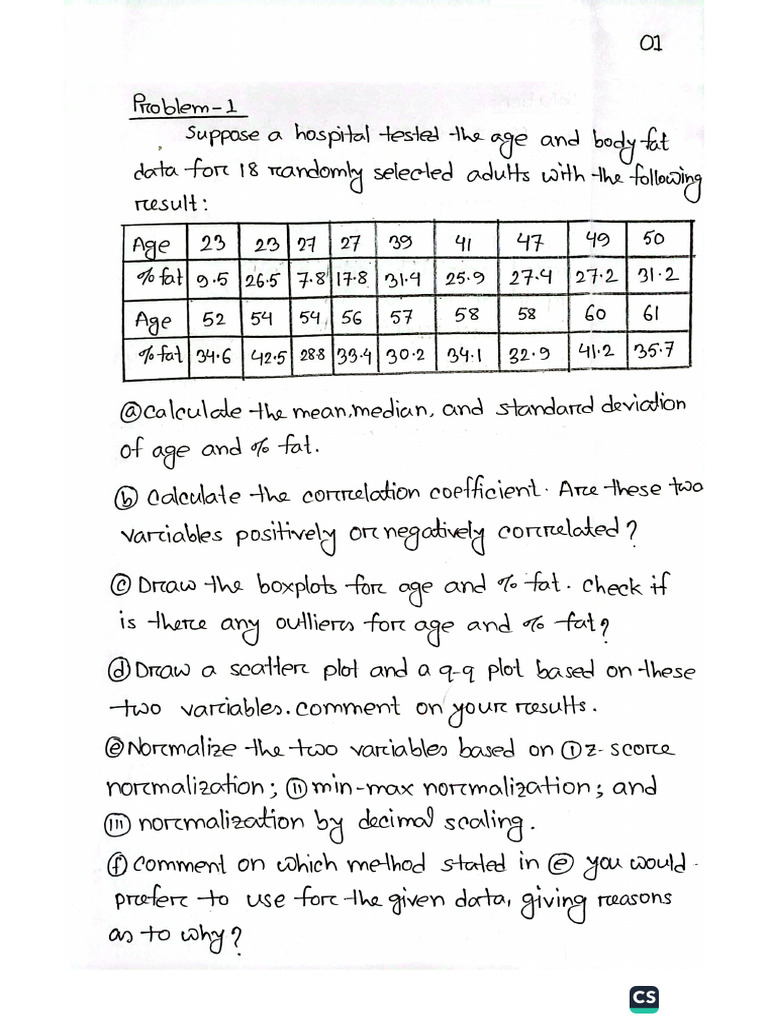 01
Problem-1
Suppose a hospital tested the age and body fat
data for 18 randomly selected adults with the following
result:
Age 23 23 27 27 39 41 47 49 50
% fat 9.5 26.5 7.8 17.8 31.4 25.9 27.4 27.2 31.2
Age 52 54 54 56 57 58 58 60 61
% fat 34.6 42.5 28.8 33.4 30.2 34.1 32.9 41.2 35.7
(a) Calculate the mean, median, and standard deviation
of age and % fat.
(b) Calculate the correlation coefficient. Are these two
variables positively or negatively correlated?
(c) Draw the boxplots for age and % fat. Check if
is there any outliers for age and % fat?
(d) Draw a scatter plot and a q-q plot based on these
two variables. comment on your results.
(e) Normalize the two variables based on (i) z-score
normalization; (ii) min-max normalization; and
(iii) normalization by decimal scaling.
(f) Comment on which method stated in (e) you would
prefer to use for the given data, giving reasons
as to why?
CS